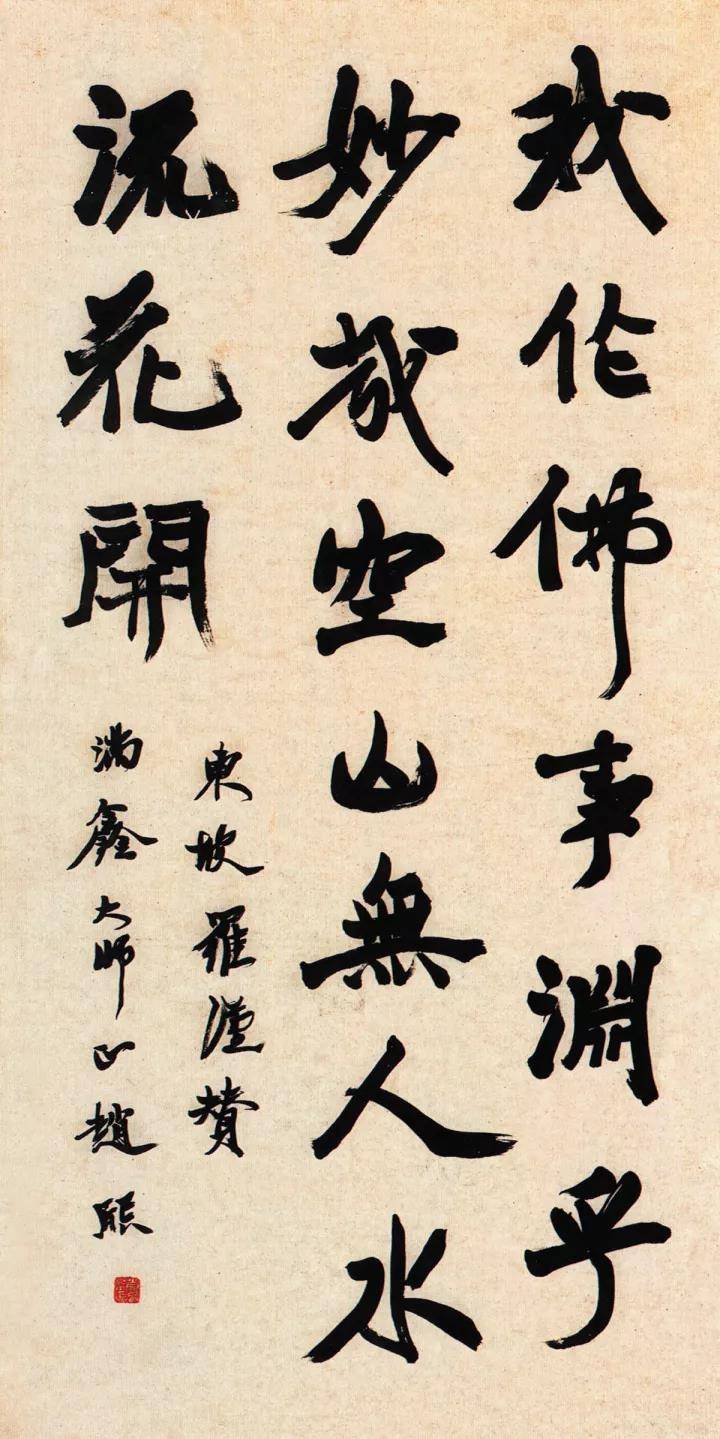 我作佛事淵乎
妙哉空山無人水
流花開
東坡羅漢贊
滿鑫大師正趙熙